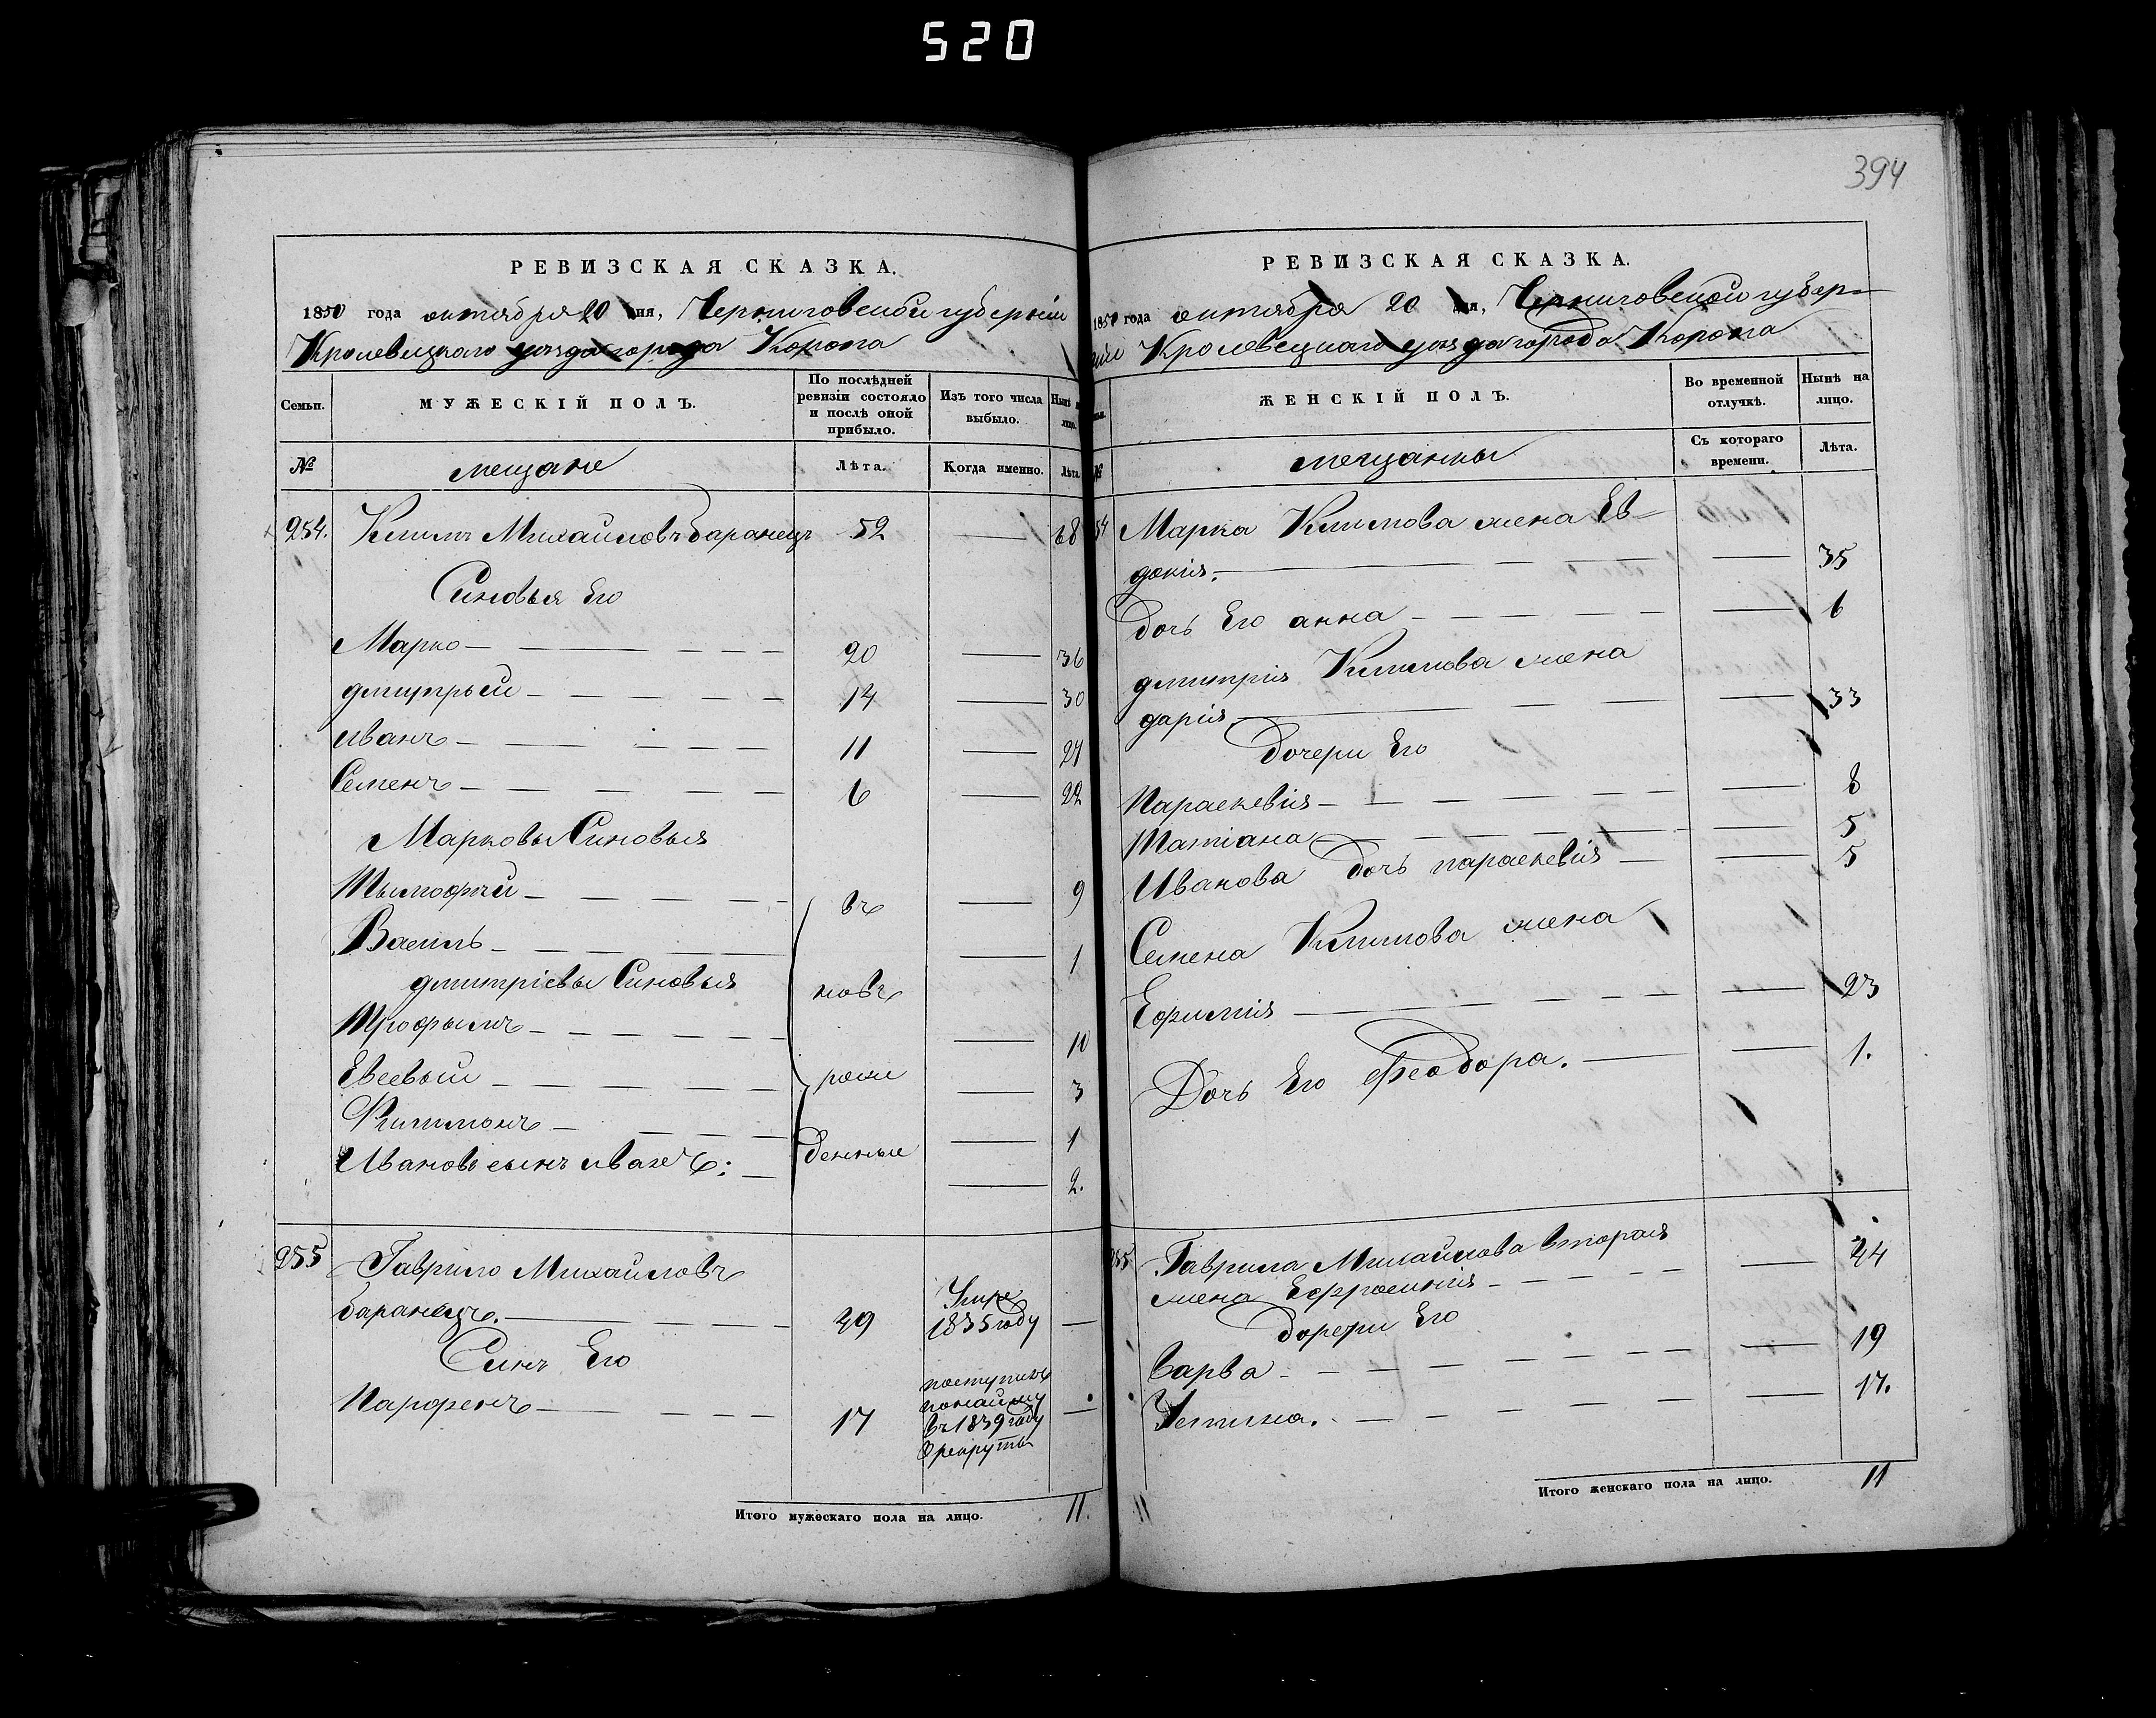 520
394
РЕВИЗСКАЯ СКАЗКА.
1850 года октября 20 дня, Черниговской губерніи
Кролевецкаго уезда города Коропа
Семьи.
МУЖЕСКІЙ ПОЛЪ.
По послѣдней ревизіи состояло и послѣ оной прибыло.
Изъ того числа выбыло.
Нынѣ на лицо.
№
мещане
Лѣта.
Когда именно.
Лѣта.
254. Климъ Михайловъ баранецъ 52 — 68
Синовья Его
Марко — 20 — 36
дмитрый — 14 — 30
иванъ — 11 — 27
Семенъ — 6 — 22
Марковы Синовья
Тымофей — въ — 9
Василь — 1
дмитріевы Синовья
новъ
Трофымъ — 10
Евсевый — рож — 3
Филимонъ — 1
Ивановъ сынъ иванъ; — денные — 2.
255 Гаврило Михайловъ
баранецъ. — 49 Умре 1835 году —
Синъ Его
Парфенъ — 17 поступилъ
понайму
въ 1839 году
в рекруты —
Итого мужескаго пола на лицо. 11.
РЕВИЗСКАЯ СКАЗКА.
1850 года октября 20 дня, Черниговской губер-
ніи Кролевецкаго уезда города Коропа
ЖЕНСКІЙ ПОЛЪ.
Во временной отлучкѣ.
Нынѣ на лицо.
№
мещанки
Съ котораго времени.
Лѣта.
54 Марка Климова жена Ев-
докия. — — 35
дочь Его анна — — 6
дмитрия Климова жена
дария — — 33
дочери Его
Параскевия — — 8
Татіана — — 5
Иванова дочь параскевия — — 5
Семена Климова жена
Ефимия — — 23
Дочь Его Феодора. — — 1.
255 Гаврила Михайлова вторая
жена Ефросиния — — 44
дочери Его
Варва — — 19
Устина. — — 17.
Итого женскаго пола на лицо. 11
11